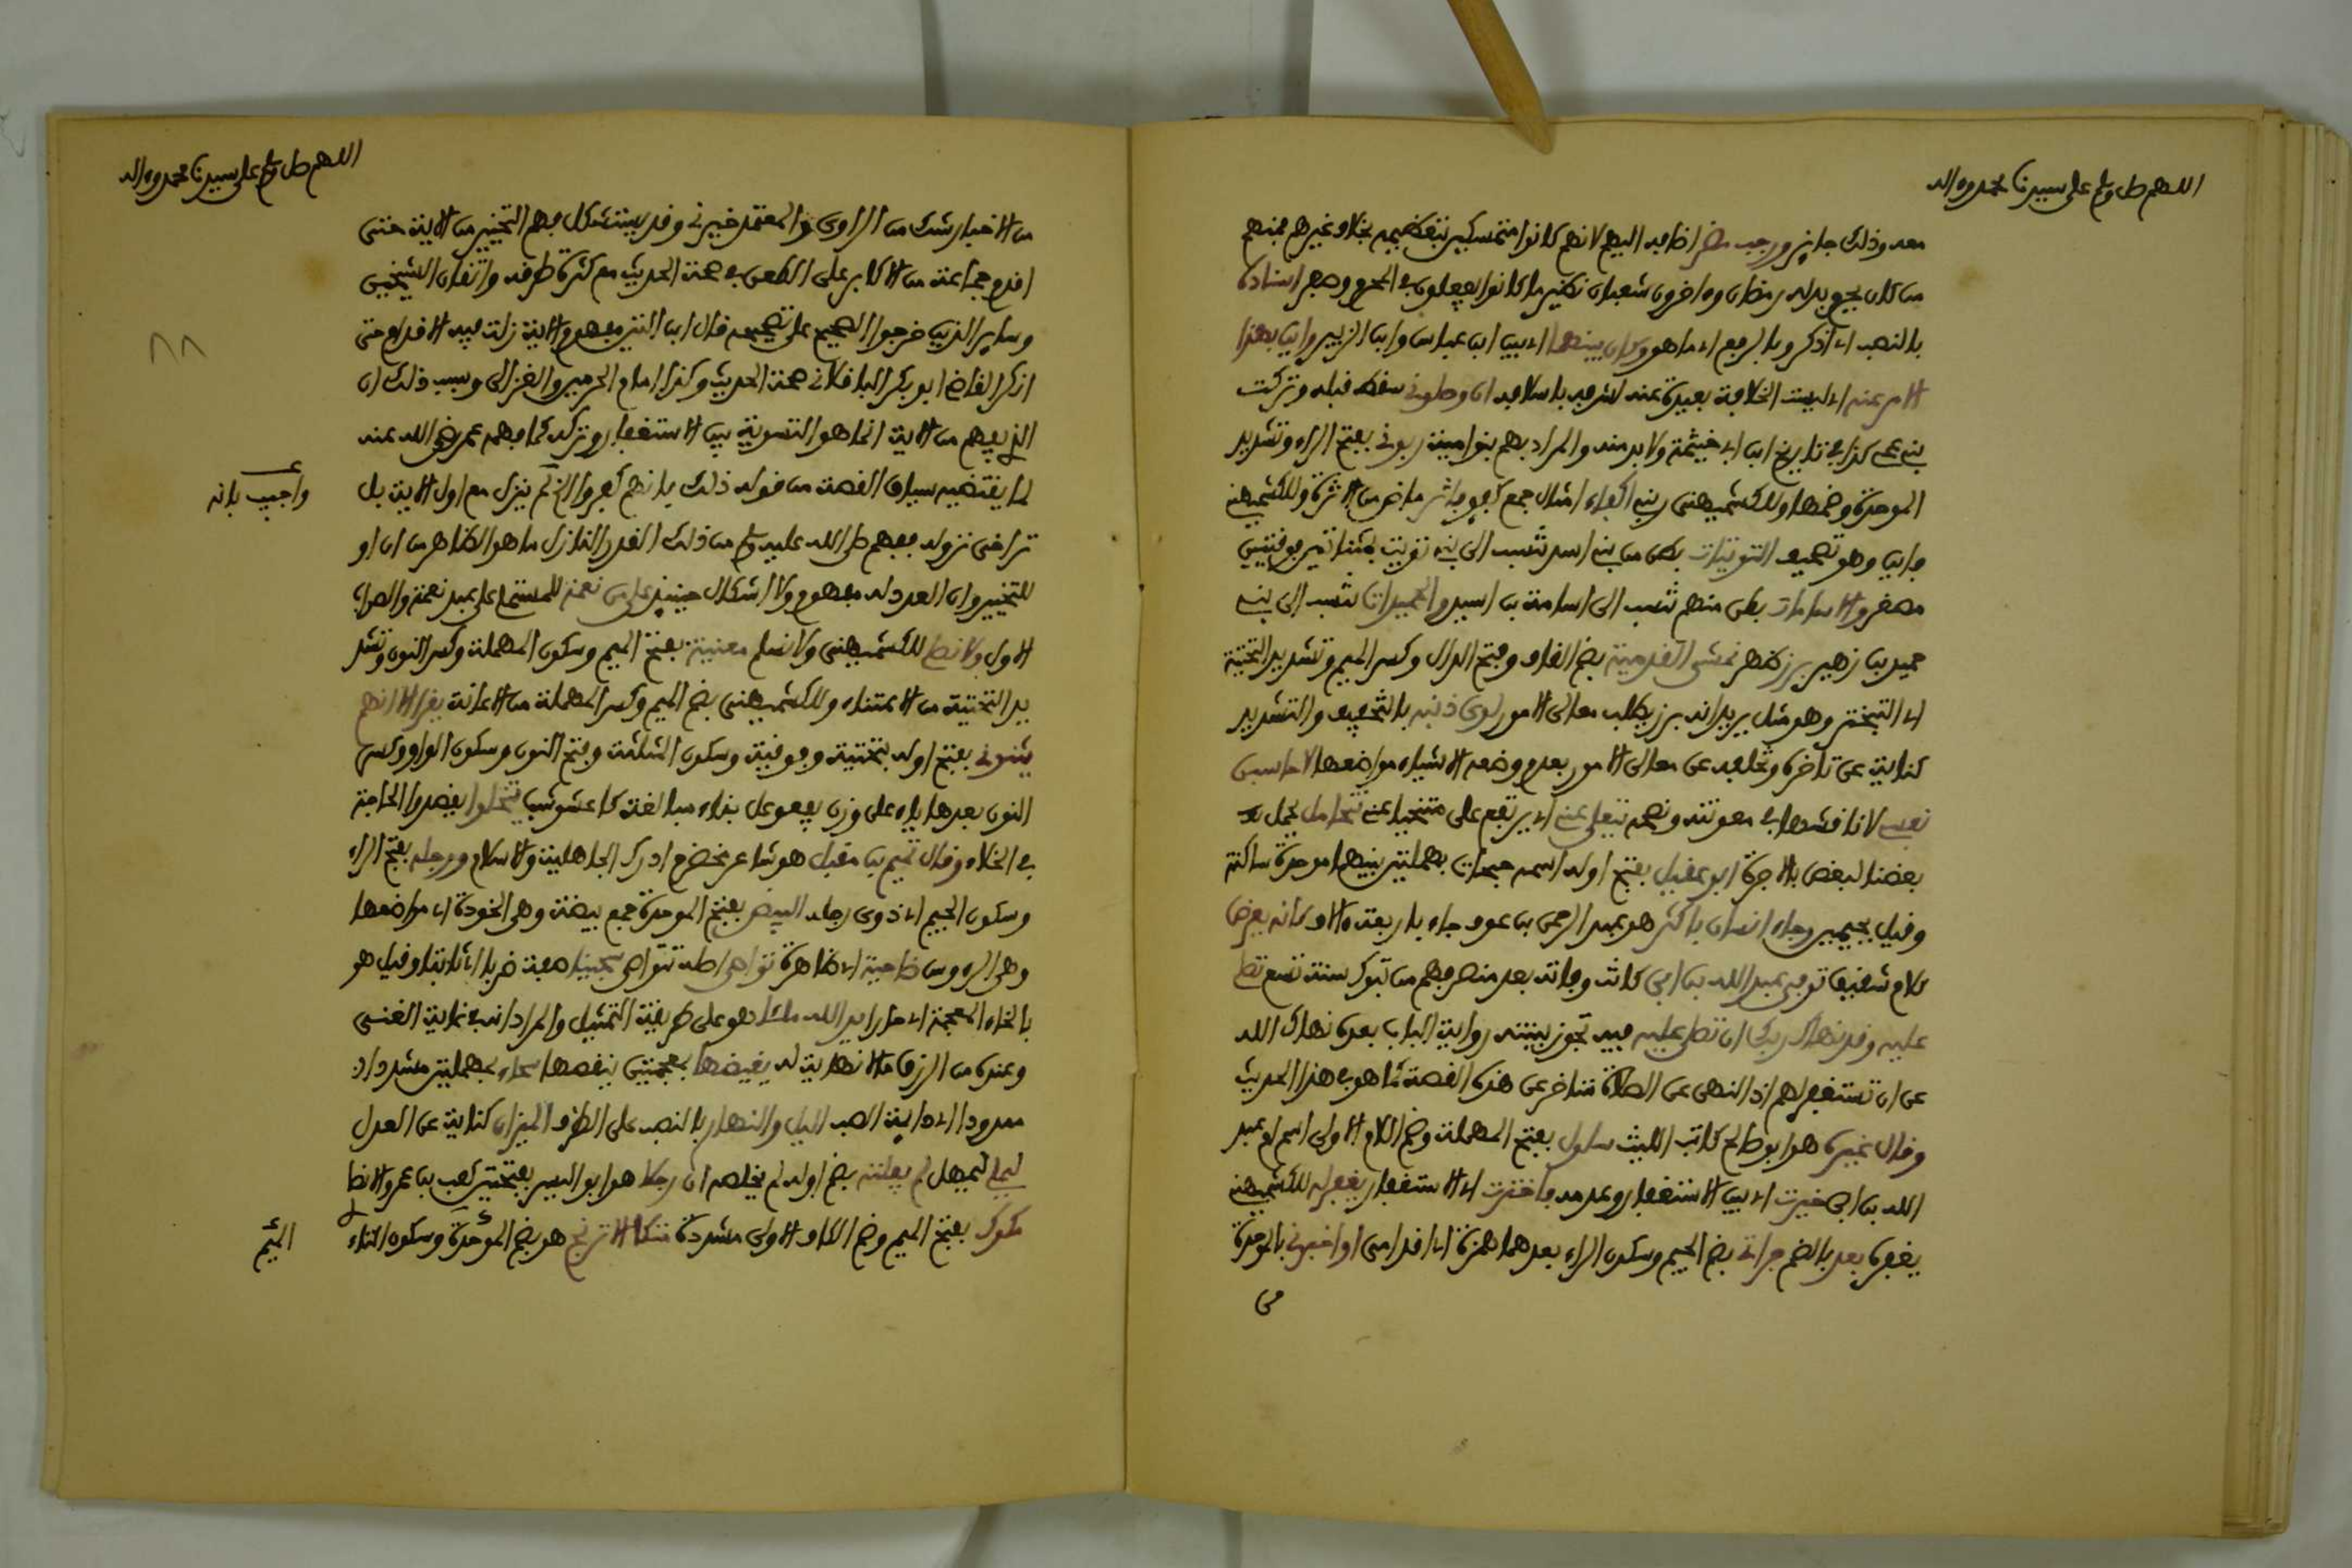 اللهم صل وسلم على سيدنا محمد وءاله
معه وذلك جايز ورجب مضر اضافه اليهم لانهم كانوا متمسكين بتعظيمه بخلاف غيرهم فمنهم
من كان يجعل بدله رمضان وءاخرون شعبان نظير ما كانوا يفعلون في المحرم وصفر اسناده
بالنصب اي اذكر وبالرفع اي ما هو وكان بينهما اي بين ابن عباس وابن الزبير واين بهذا
الامر عنه اي ليست الخلافة بعيدة عنه لشرفه باسلافه ان وصلوني سقط قبله وتركت
بني عمي كذا في تاريخ ابن ابي خيثمة ولا بد منه والمراد بهم بنوا امية ربوني بفتح الراء وتشديد
الموحدة وضمها وللكشميهني ربني اكفاء امثال جمع كفو فاثر ماض من الاثرة وللكشميهني
فاين وهو تصحيف التويتات بطن من بني اسد تنسب الى بني تويت بمثناتين فوقيتين
مصغر والاسامات بطن منهم تنسب الى اسامة بن اسيد والحميدات تنسب الى بني
حميد بن زهير برز ظهر يمشي القدمية بضم القاف وفتح الدال وكسر الميم وتشديد التحتية
اي التبختر وهو مثل يريد انه برز يطلب معالي الامور لوى ذنبه بالتخفيف والتشديد
كناية عن تاخره وتخلفه عن معالي الامور بعدم وضعه الاشياء مواضعها لاحاسبن
نفسي لاناقشنها في معونته ونصحه يتعلى عني اي يرتفع علي متنحيا عني نتحامل يحمل
بعضنا لبعض بالاجرة ابو عقيل بفتح اوله اسمه حبحاب بمهملتين بينهما موحدة ساكنة
وقيل بجيمين وجاء انسان باكثر هو عبد الرحمن بن عوف جاء باربعة ءالاف كانه يعرض
كلام شقيق توفي عبد الله بن ابي كانت وفاته بعد منصرفهم من تبوك سنة تسع تصل
عليه وقد نهاك ربك ان تصلي عليه فيه تجوز بينته رواية الباب بعده نهاك الله
عن ان تستغفر لهم اذ النهي عن الصلاة متاخر عن هذه القصة كما هو في هذا الحديث
وقال غيره هو ابو صالح كاتب الليث سلول بفتح المهملة وضم اللام الاولى اسم ام عبد
الله بن ابي خيرت اي بين الاستغفار وعدمه فاخترت اي الاستغفار يغفر له للكشميهني
يغفره بعد بالضم جراتي بضم الجيم وسكون الراء بعدها همزة اي اقدامي او اخبرني بالموحدة
من
اللهم صل وسلم على سيدنا محمد وءاله
من الاخبار شك من الراوي والمعتمد خيرني وقد يستشكل فهم التخيير من الاية حتى
اقدم جماعة من الاكابر على الطعن في صحة الحديث مع كثرة طرقه واتفاق الشيخين
وساير الذين خرجوا الصحيح على تصحيحه قال ابن المنير مفهوم الاية زلت فيه الاقدام حتى
انكر القاضي ابو بكر الباقلاني صحة الحديث وكذا امام الحرمين والغزالي وسبب ذلك ان
الذي يفهم من الاية انما هو التسوية بين الاستغفار وتركه كما فهم عمر رضي الله عنه
لما يقتضيه سياق القصة من قوله ذلك بانهم كفروا الخ لم ينزل مع اول الاية بل
واجيب بانه
تراخى نزوله ففهم صلى الله عليه وسلم من ذلك القدر النازل ما هو الظاهر من ان او
للتخيير وان العدد له مفهوم ولا اشكال حينيذ علي من نعمة للمستملي على عبد نعمة والصواب
الاول ولا نصلي للكشميهني ولا نسلم معنية بفتح الميم وسكون المهملة وكسر النون وتشد
يد التحتية من الاعتناء وللكشميهني بضم الميم وكسر المهملة من الاعانة يقرا الا انهم
يثنوني بفتح اوله بتحتية وفوقية وسكون المثلثة وفتح النون وسكون الواو وكسر
النون بعدها ياء على وزن يفعوعل بناء مبالغة كاعشوشب يتخلوا يقضوا الحاجة
في الخلاء وقال تميم بن مقبل هو شاعر مخضرم ادرك الجاهلية والاسلام ورجلة بفتح الراء
وسكون الجيم اي ذوي رجلة البيض بفتح الموحدة جمع بيضة وهي الخوذة اي مواضعها
وهي الرءوس ضاحية اي ظاهرة تواصى اصله تتواصى سجينا صفة ضربا اي ثابتا وقيل هو
بالخاء المعجمة اي حارا يد الله ملأى هو على طريقة التمثيل والمراد انه في غاية الغنى
وعنده من الرزق ما لا نهاية له يغيضها بمعجمتين ينقصها سحاء بمهملتين مشددا
ممدودا اي دايمة الصب الليل والنهار بالنصب على الظرف الميزان كناية عن العدل
ليملي ليمهل لم يفلته بضم اوله لم يخلصه ان رجلا هو ابو اليسر بفتحتين كعب بن عمرو الانصا
مكوك بفتح الميم وضم الكاف الاولى مشددة متكا الاترنج هو بضم الموحدة وسكون التاء
الميم